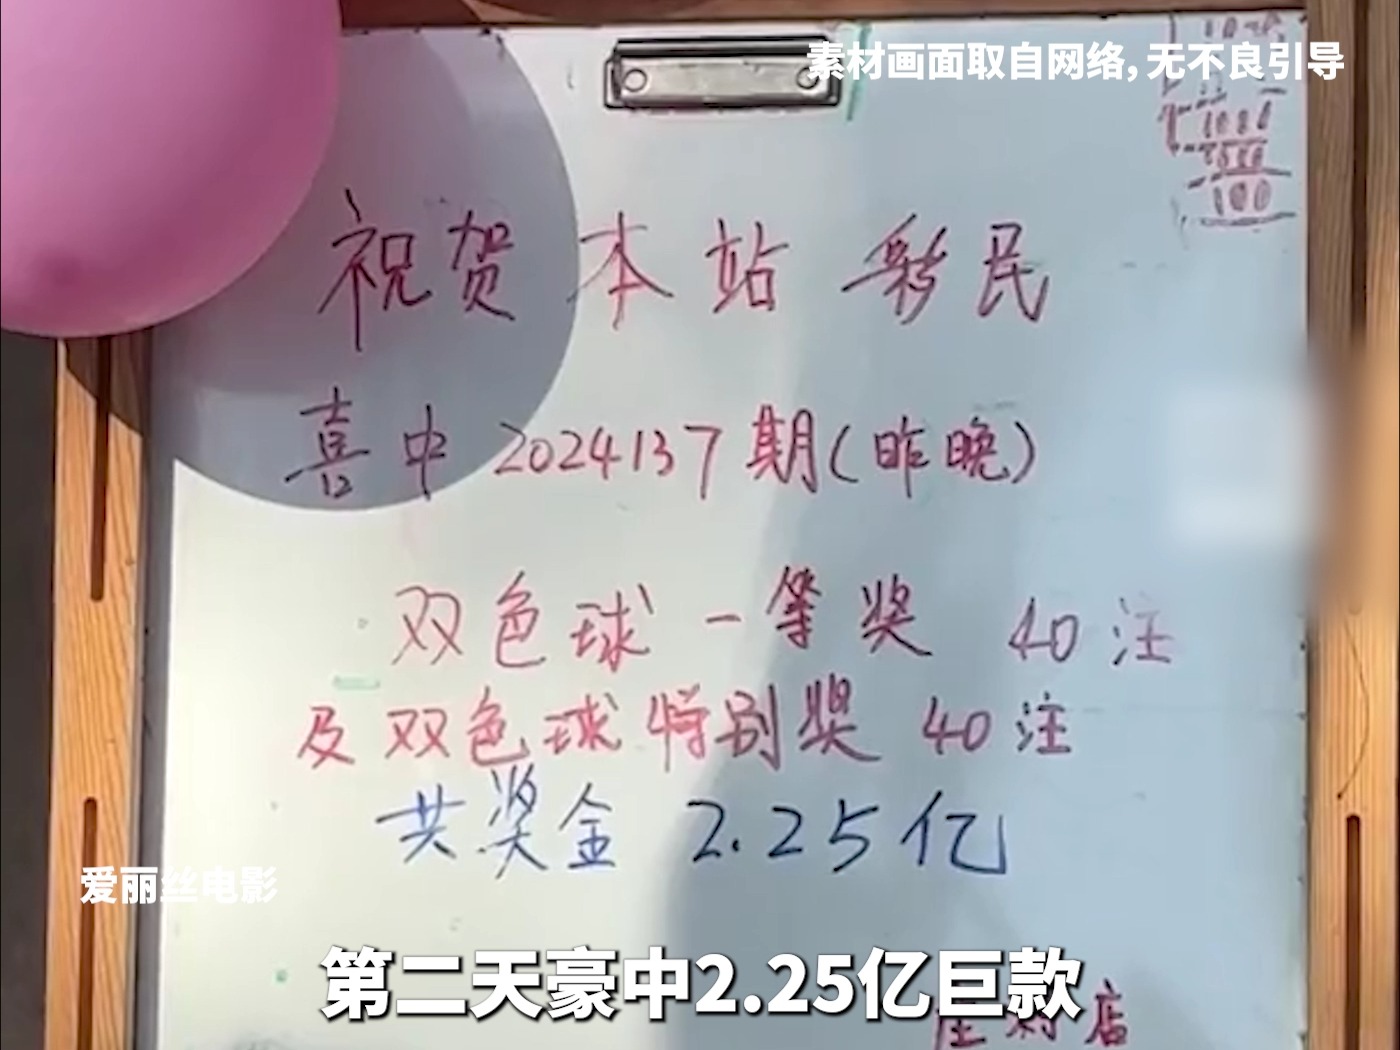 素材画面取自网络，无不良引导
100
祝贺本站彩民
喜中2024137期(昨晚)
双色球一等奖 40注
及双色球特别奖 40注
共奖金 2.25亿
爱丽丝电影
第二天豪中2.25亿巨款
店